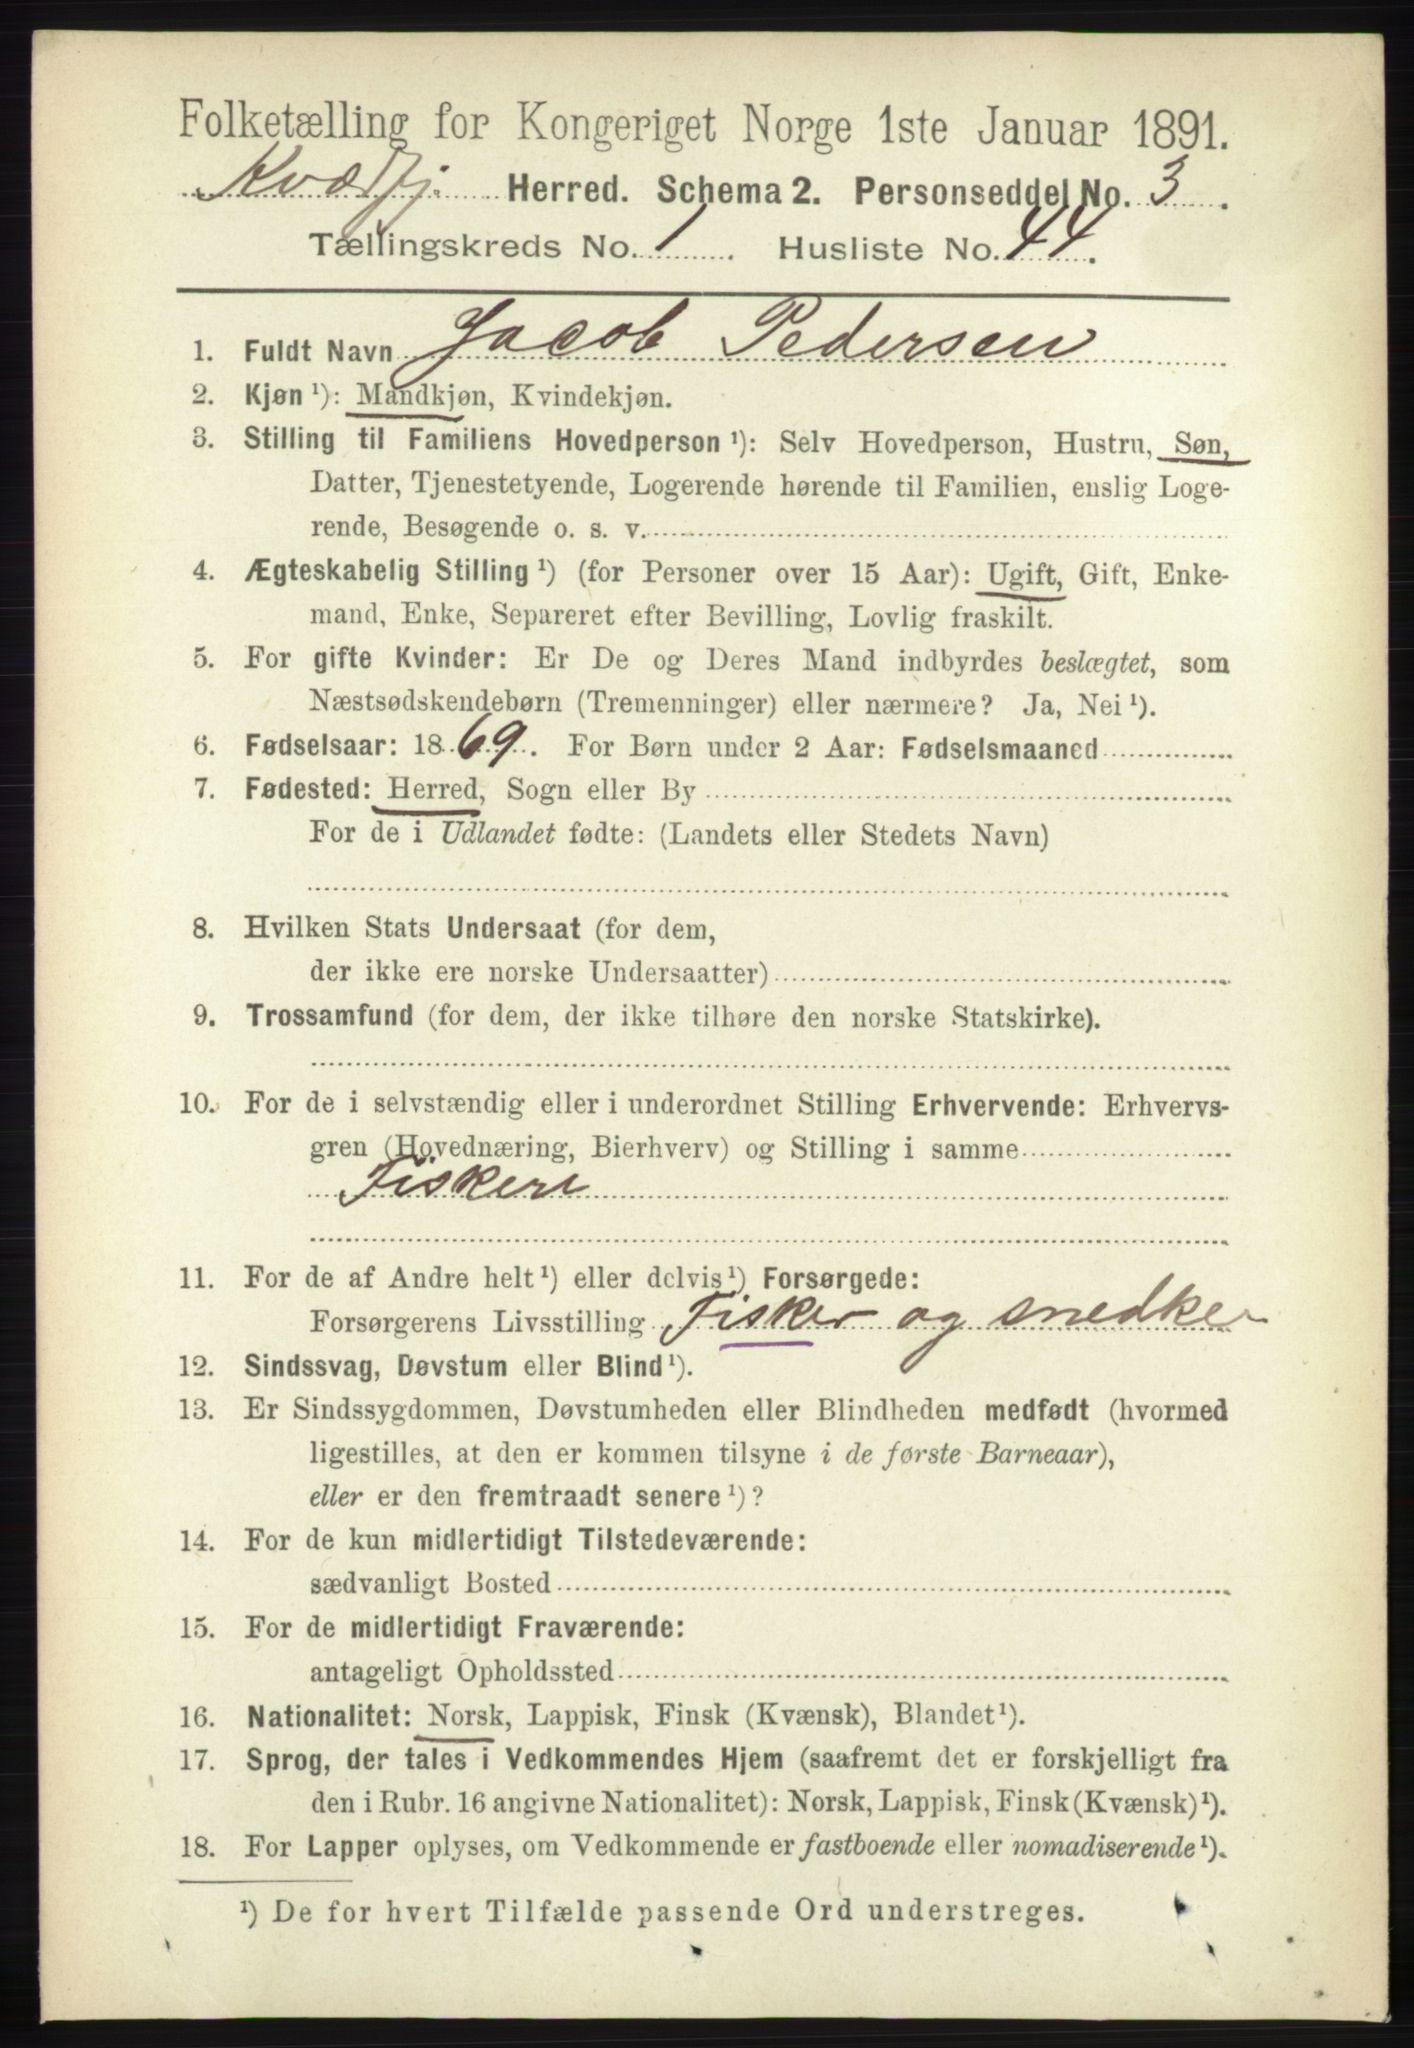 Folketælling for Kongeriget Norge 1ste Januar 1891.
Kvædfj. Herred. Schema 2. Personseddel No. 3.
Tællingskreds No. 1. Husliste No. 44.
1. Fuldt Navn Jacob Pedersen
2. Kjøn ¹): Mandkjøn, Kvindekjøn.
3. Stilling til Familiens Hovedperson ¹): Selv Hovedperson, Hustru, Søn,
Datter, Tjenestetyende, Logerende hørende til Familien, enslig Loge-
rende, Besøgende o. s. v.
4. Ægteskabelig Stilling ¹) (for Personer over 15 Aar): Ugift, Gift, Enke-
mand, Enke, Separeret efter Bevilling, Lovlig fraskilt.
5. For gifte Kvinder: Er De og Deres Mand indbyrdes beslægtet, som
Næstsødskendebørn (Tremenninger) eller nærmere? Ja, Nei ¹).
6. Fødselsaar: 1869. For Børn under 2 Aar: Fødselsmaaned
7. Fødested: Herred, Sogn eller By
For de i Udlandet fødte: (Landets eller Stedets Navn)
8. Hvilken Stats Undersaat (for dem,
der ikke ere norske Undersaatter)
9. Trossamfund (for dem, der ikke tilhøre den norske Statskirke).
10. For de i selvstændig eller i underordnet Stilling Erhvervende: Erhvervs-
gren (Hovednæring, Bierhverv) og Stilling i samme
Fiskeri
11. For de af Andre helt ¹) eller delvis ¹) Forsørgede:
Forsørgerens Livsstilling Fisker og snedker
12. Sindssvag, Døvstum eller Blind ¹).
13. Er Sindssygdommen, Døvstumheden eller Blindheden medfødt (hvormed
ligestilles, at den er kommen tilsyne i de første Barneaar),
eller er den fremtraadt senere ¹)?
14. For de kun midlertidigt Tilstedeværende:
sædvanligt Bosted
15. For de midlertidigt Fraværende:
antageligt Opholdssted
16. Nationalitet: Norsk, Lappisk, Finsk (Kvænsk), Blandet ¹).
17. Sprog, der tales i Vedkommendes Hjem (saafremt det er forskjelligt fra
den i Rubr. 16 angivne Nationalitet): Norsk, Lappisk, Finsk (Kvænsk) ¹).
18. For Lapper oplyses, om Vedkommende er fastboende eller nomadiserende ¹).
¹) De for hvert Tilfælde passende Ord understreges.